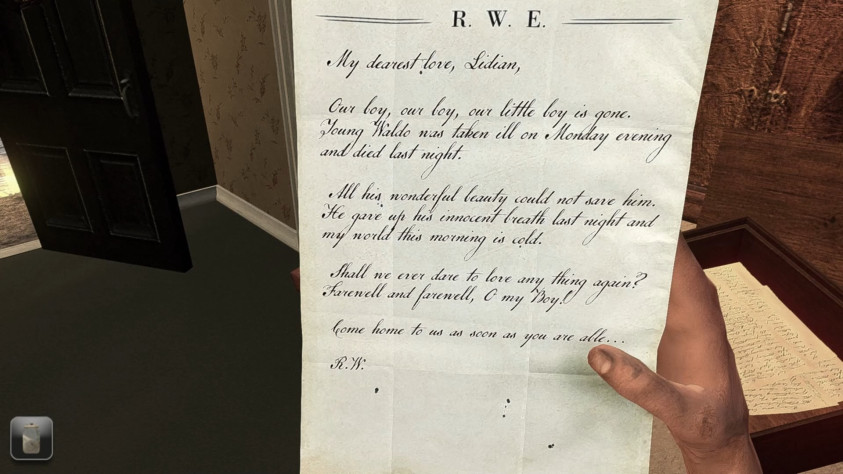 R. W. E.
My dearest love, Lidian,
Our boy, our boy, our little boy is gone.
Young Waldo was taken ill on Monday evening
and died last night.
All his wonderful beauty could not save him.
He gave up his innocent breath last night and
my world this morning is cold.
Shall we ever dare to love any thing again?
Farewell and farewell, O my Boy!
Come home to us as soon as you are able...
R.W.